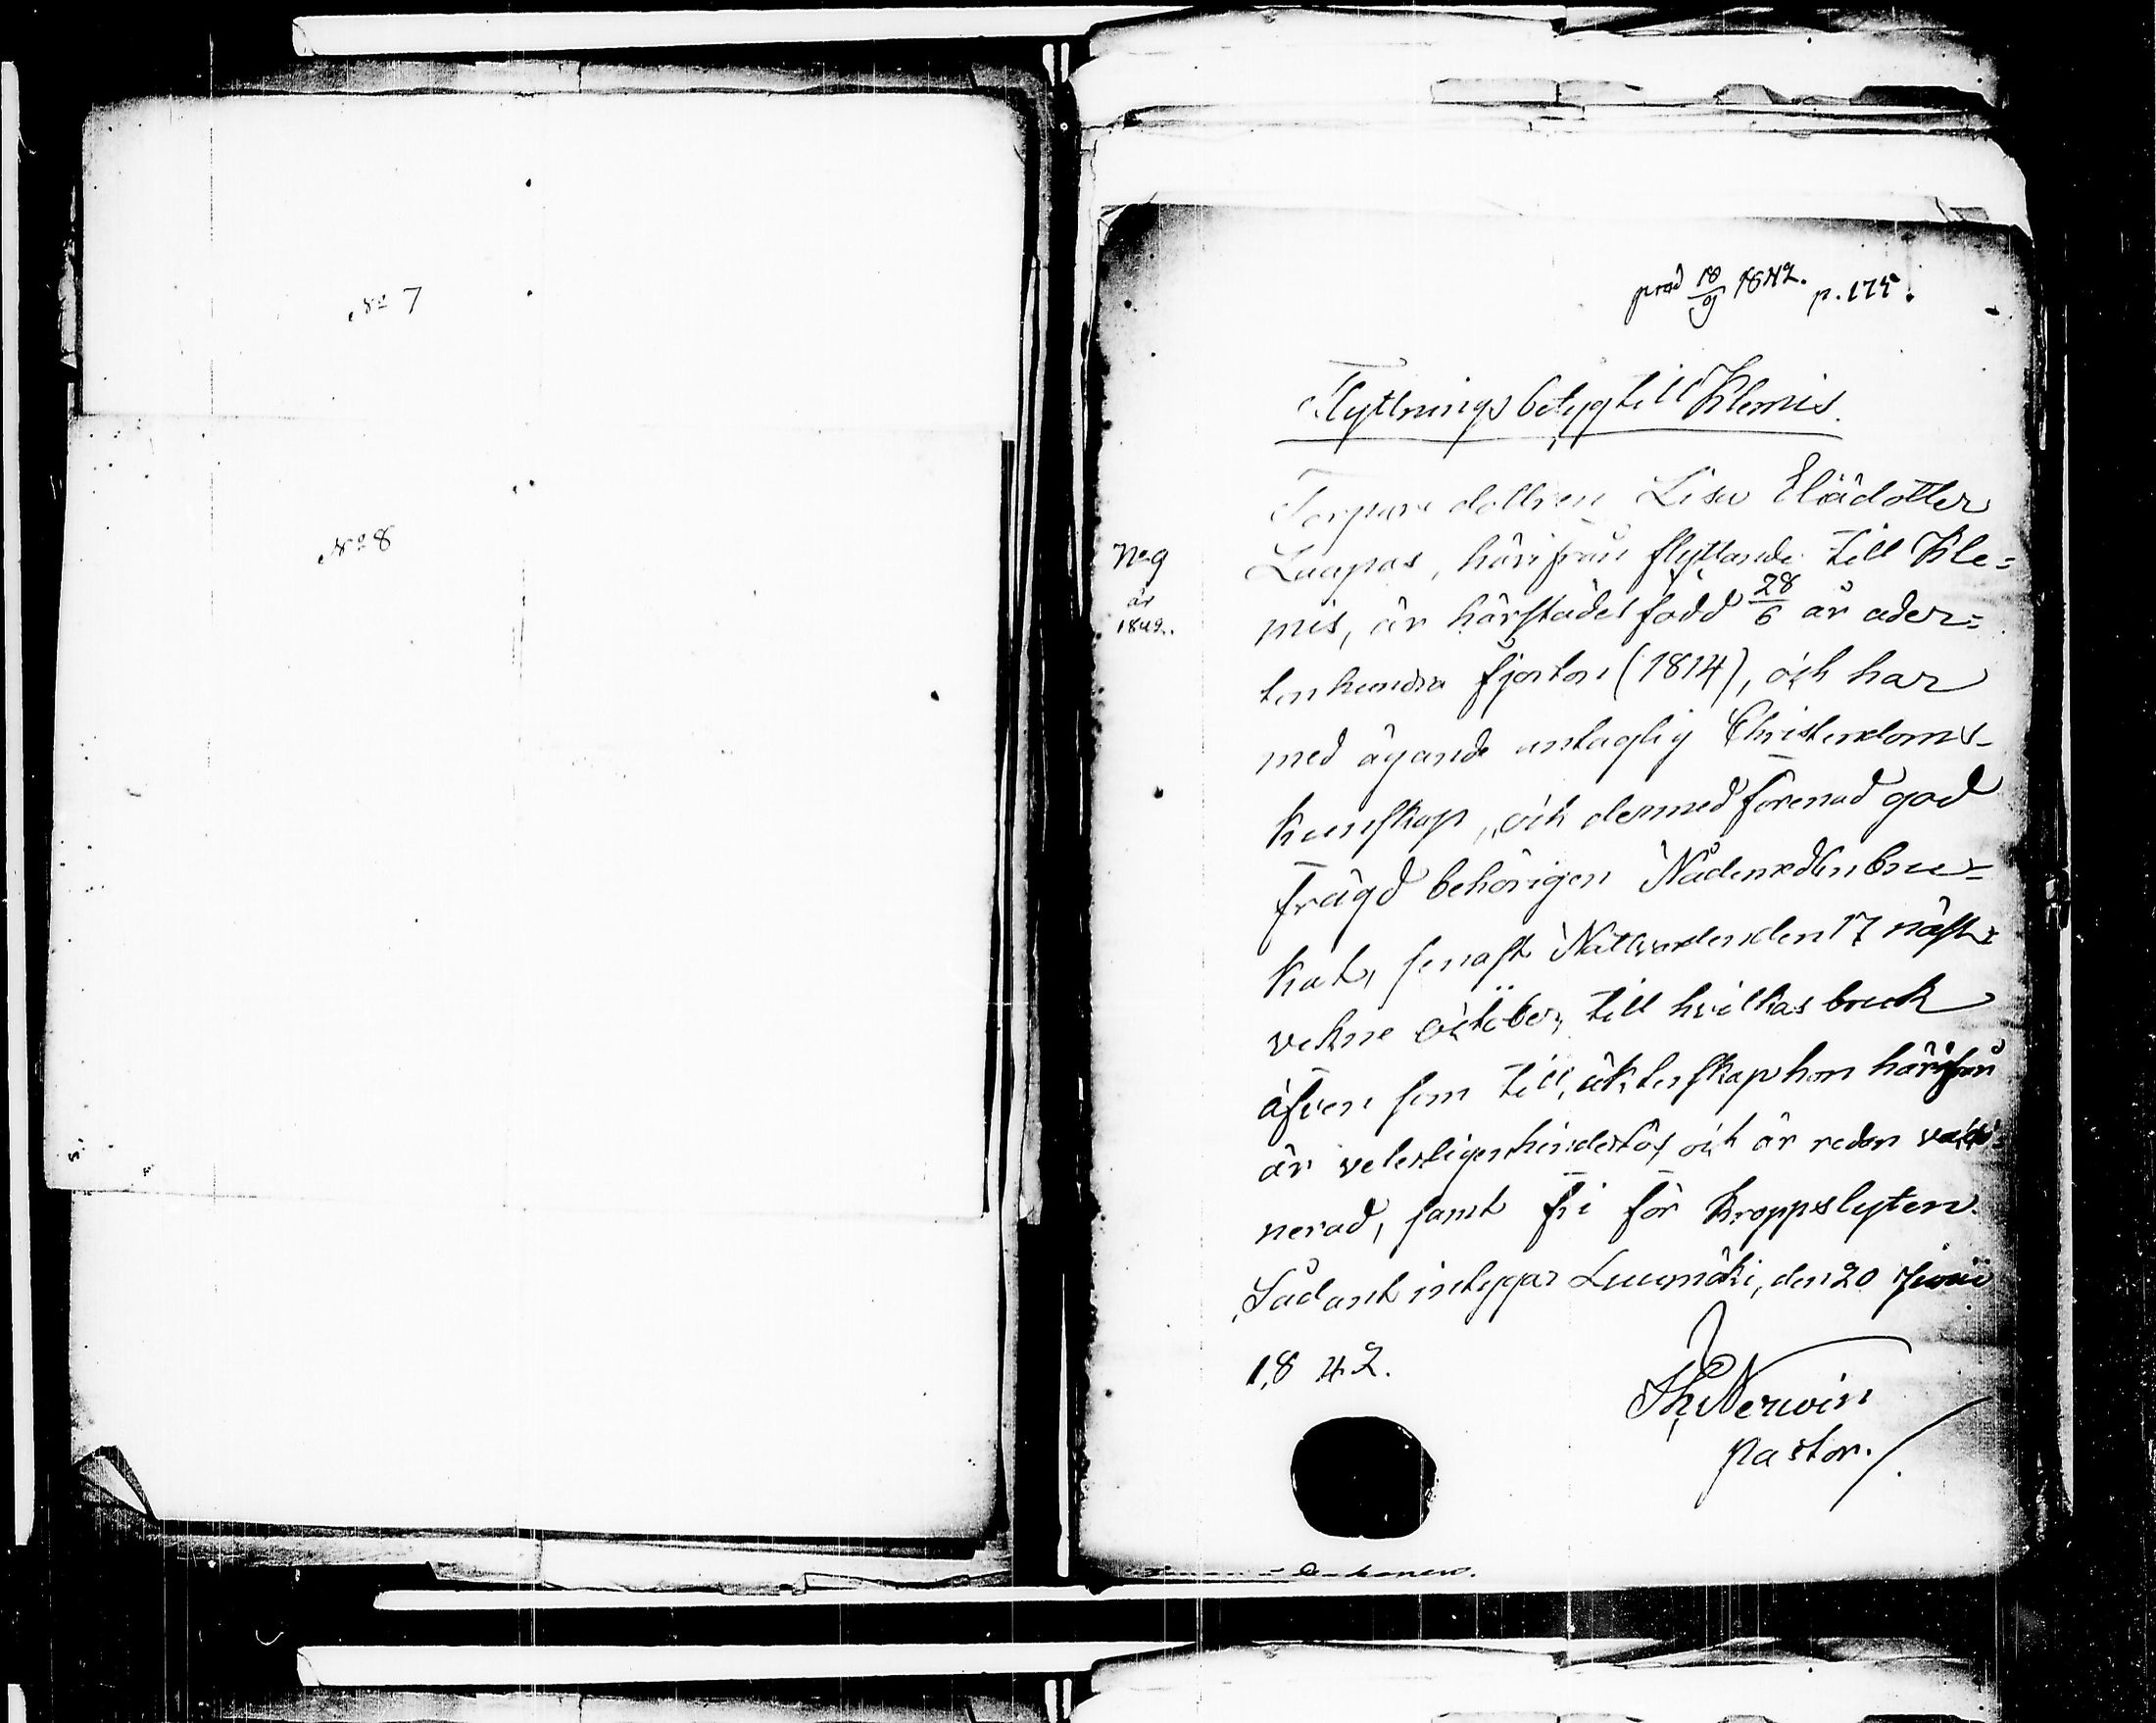 No 7
No 8
prod 18/9 1842. p. 175.
Flyttningsbetyg till Klemis.
No 9
år
1842.
Torpare dottren Lisa Eliädotter
Laapas, härifrån flyttande till Kle=
mis, är härstädes född 28/6 år ader=
tonhundra fjorton (1814), och har
med ägande antaglig Christendoms-
kunskap, och dermed förenad god
frägd behörigen Nådemedlen bru=
kat, senast Nattvarden den 17 näst=
vekne october, till hvilkas bruk
äfven som till äktenskap hon härifrån
är veterligen hinderlös och är redan vacci=
nerad, samt fri för kroppslyten.
Sådant intygar Luumäki, den 20 Junii
1842.
Nerwin
pastor.